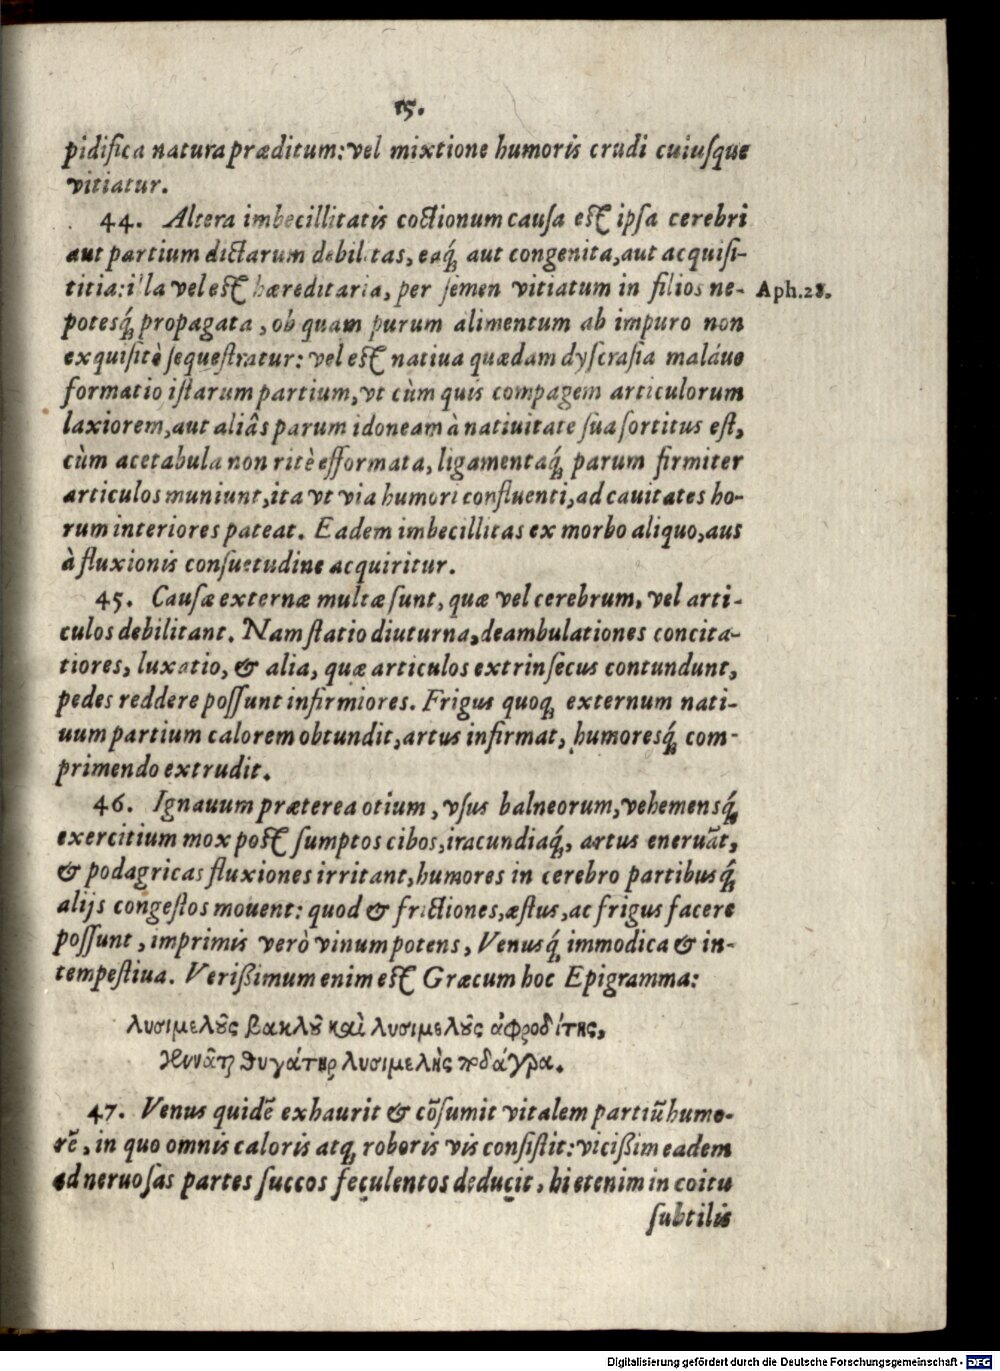 15.
pidifica natura præditum: vel mixtione humoris crudi cuiuſque
vitiatur.
44. Altera imbecillitatis coctionum cauſa eſt ipſa cerebri
aut partium dictarum debilitas, eaq́; aut congenita, aut acquiſi-
titia: illa vel eſt hæreditaria, per ſemen vitiatum in filios ne-
Aph.28.
potesq́; propagata, ob quam purum alimentum ab impuro non
exquiſitè ſequeſtratur: vel eſt natiua quædam dyſcraſia maláue
formatio iſtarum partium, vt cùm quis compagem articulorum
laxiorem, aut aliâs parum idoneam à natiuitate ſua ſortitus eſt,
cùm acetabula non ritè efformata, ligamentaq́; parum firmiter
articulos muniunt, ita vt via humori confluenti, ad cauitates ho-
rum interiores pateat. Eadem imbecillitas ex morbo aliquo, aus
à fluxionis conſuetudine acquiritur.
45. Cauſæ externæ multæ ſunt, quæ vel cerebrum, vel arti-
culos debilitant. Nam ſtatio diuturna, deambulationes concita-
tiores, luxatio, & alia, quæ articulos extrinſecus contundunt,
pedes reddere poſſunt infirmiores. Frigus quoq; externum nati-
uum partium calorem obtundit, artus infirmat, humoresq́; com-
primendo extrudit.
46. Ignauum præterea otium, vſus balneorum, vehemensq́;
exercitium mox poſt ſumptos cibos, iracundiaq́;, artus eneruãt,
& podagricas fluxiones irritant, humores in cerebro partibusq́;
alijs congeſtos mouent: quod & frictiones, æſtus, ac frigus facere
poſſunt, imprimis verò vinum potens, Venusq́; immodica & in-
tempeſtiua. Verißimum enim eſt Græcum hoc Epigramma:
λυσιμελοῦς βακχοῦ καὶ λυσιμελοῦς ἀφροδίτης,
γεννᾶται θυγάτηρ λυσιμελὴς ποδάγρα.
47. Venus quidẽ exhaurit & cõſumit vitalem partiũ humo-
rẽ, in quo omnis caloris atq; roboris vis conſiſtit: vicißim eadem
ad neruoſas partes ſuccos feculentos deducit, hi etenim in coitu
ſubtilis
Digitalisierung gefördert durch die Deutsche Forschungsgemeinschaft - DFG